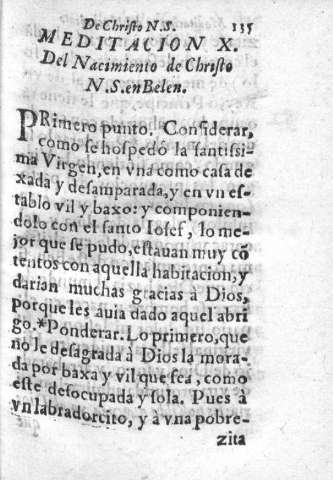 De Christo N.S. 135
MEDITACION X.
Del Nacimiento de Christo
N.S. en Belen.
PRimero punto. Considerar,
como se hospedó la santissi-
ma Virgen, en vna como casa de
xada y desamparada, y en vn es-
tablo vil y baxo: y componien-
dolo con el santo Iosef, lo me-
jor que se pudo, estauan muy cõ
tentos con aquella habitacion, y
darian muchas gracias à Dios,
porque les auia dado aquel abri
go.*Ponderar. Lo primero, que
no le desagrada à Dios la mora-
da por baxa y vil que sea, como
este desocupada y sola. Pues à
vn labradorcito, y à vna pobre-
zita